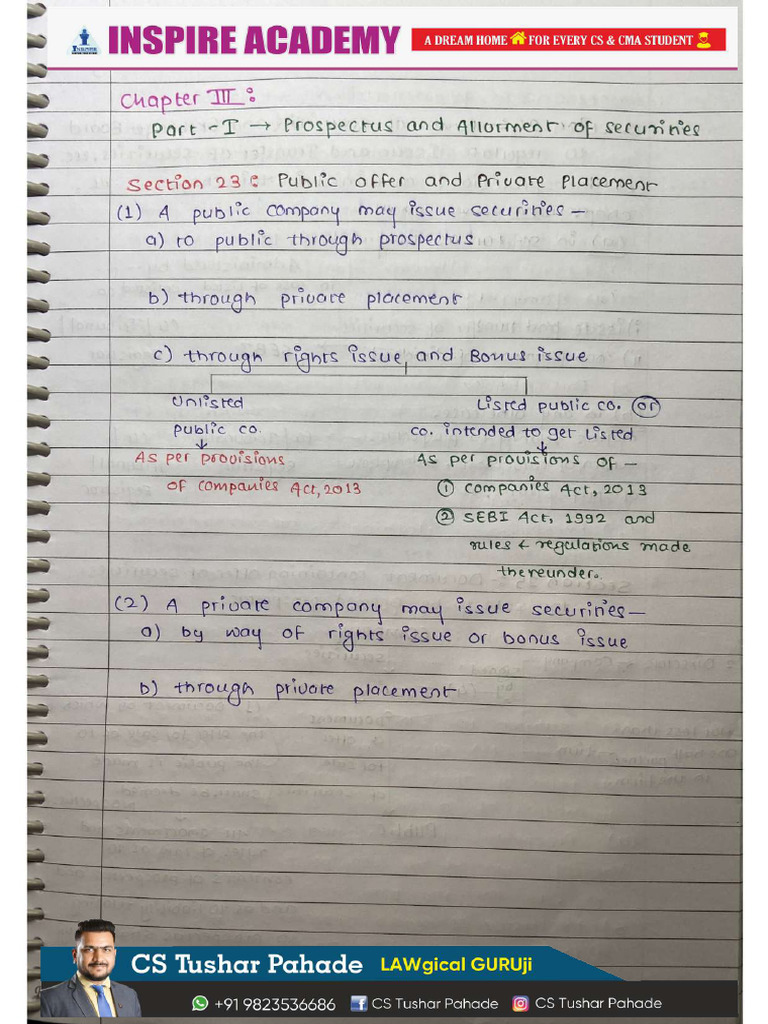 INSPIRE ACADEMY
A DREAM HOME FOR EVERY CS & CMA STUDENT
Chapter III :
Part-I → Prospectus and Allotment of securities
Section 23 : Public offer and Private Placement
(1) A public company may issue securities -
a) to public through prospectus
b) through private placement
c) through rights issue and Bonus issue
Unlisted
public co.
↓
As per provisions
of companies Act, 2013
Listed public co. or
co. intended to get listed
↓
As per provisions of -
① companies Act, 2013
② SEBI Act, 1992 and
rules & regulations made
thereunder.
(2) A private company may issue securities -
a) by way of rights issue or bonus issue
b) through private placement
CS Tushar Pahade LAWgical GURUji
+91 9823536686 CS Tushar Pahade CS Tushar Pahade